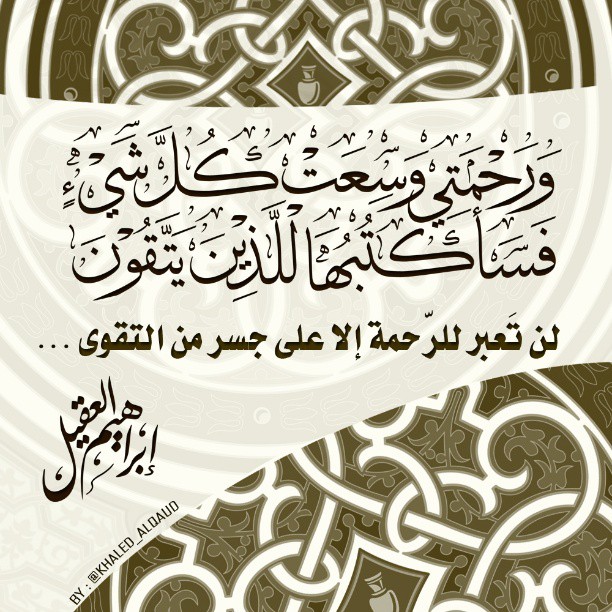 وَرَحْمَتِي وَسِعَتْ كُلَّ شَيْءٍ
فَسَأَكْتُبُهَا لِلَّذِينَ يَتَّقُونَ
لن تَعبر للرّحمة إلا على جسر من التقوى ...
إبراهيم العقيل
BY : @KHALED_ALQAUD